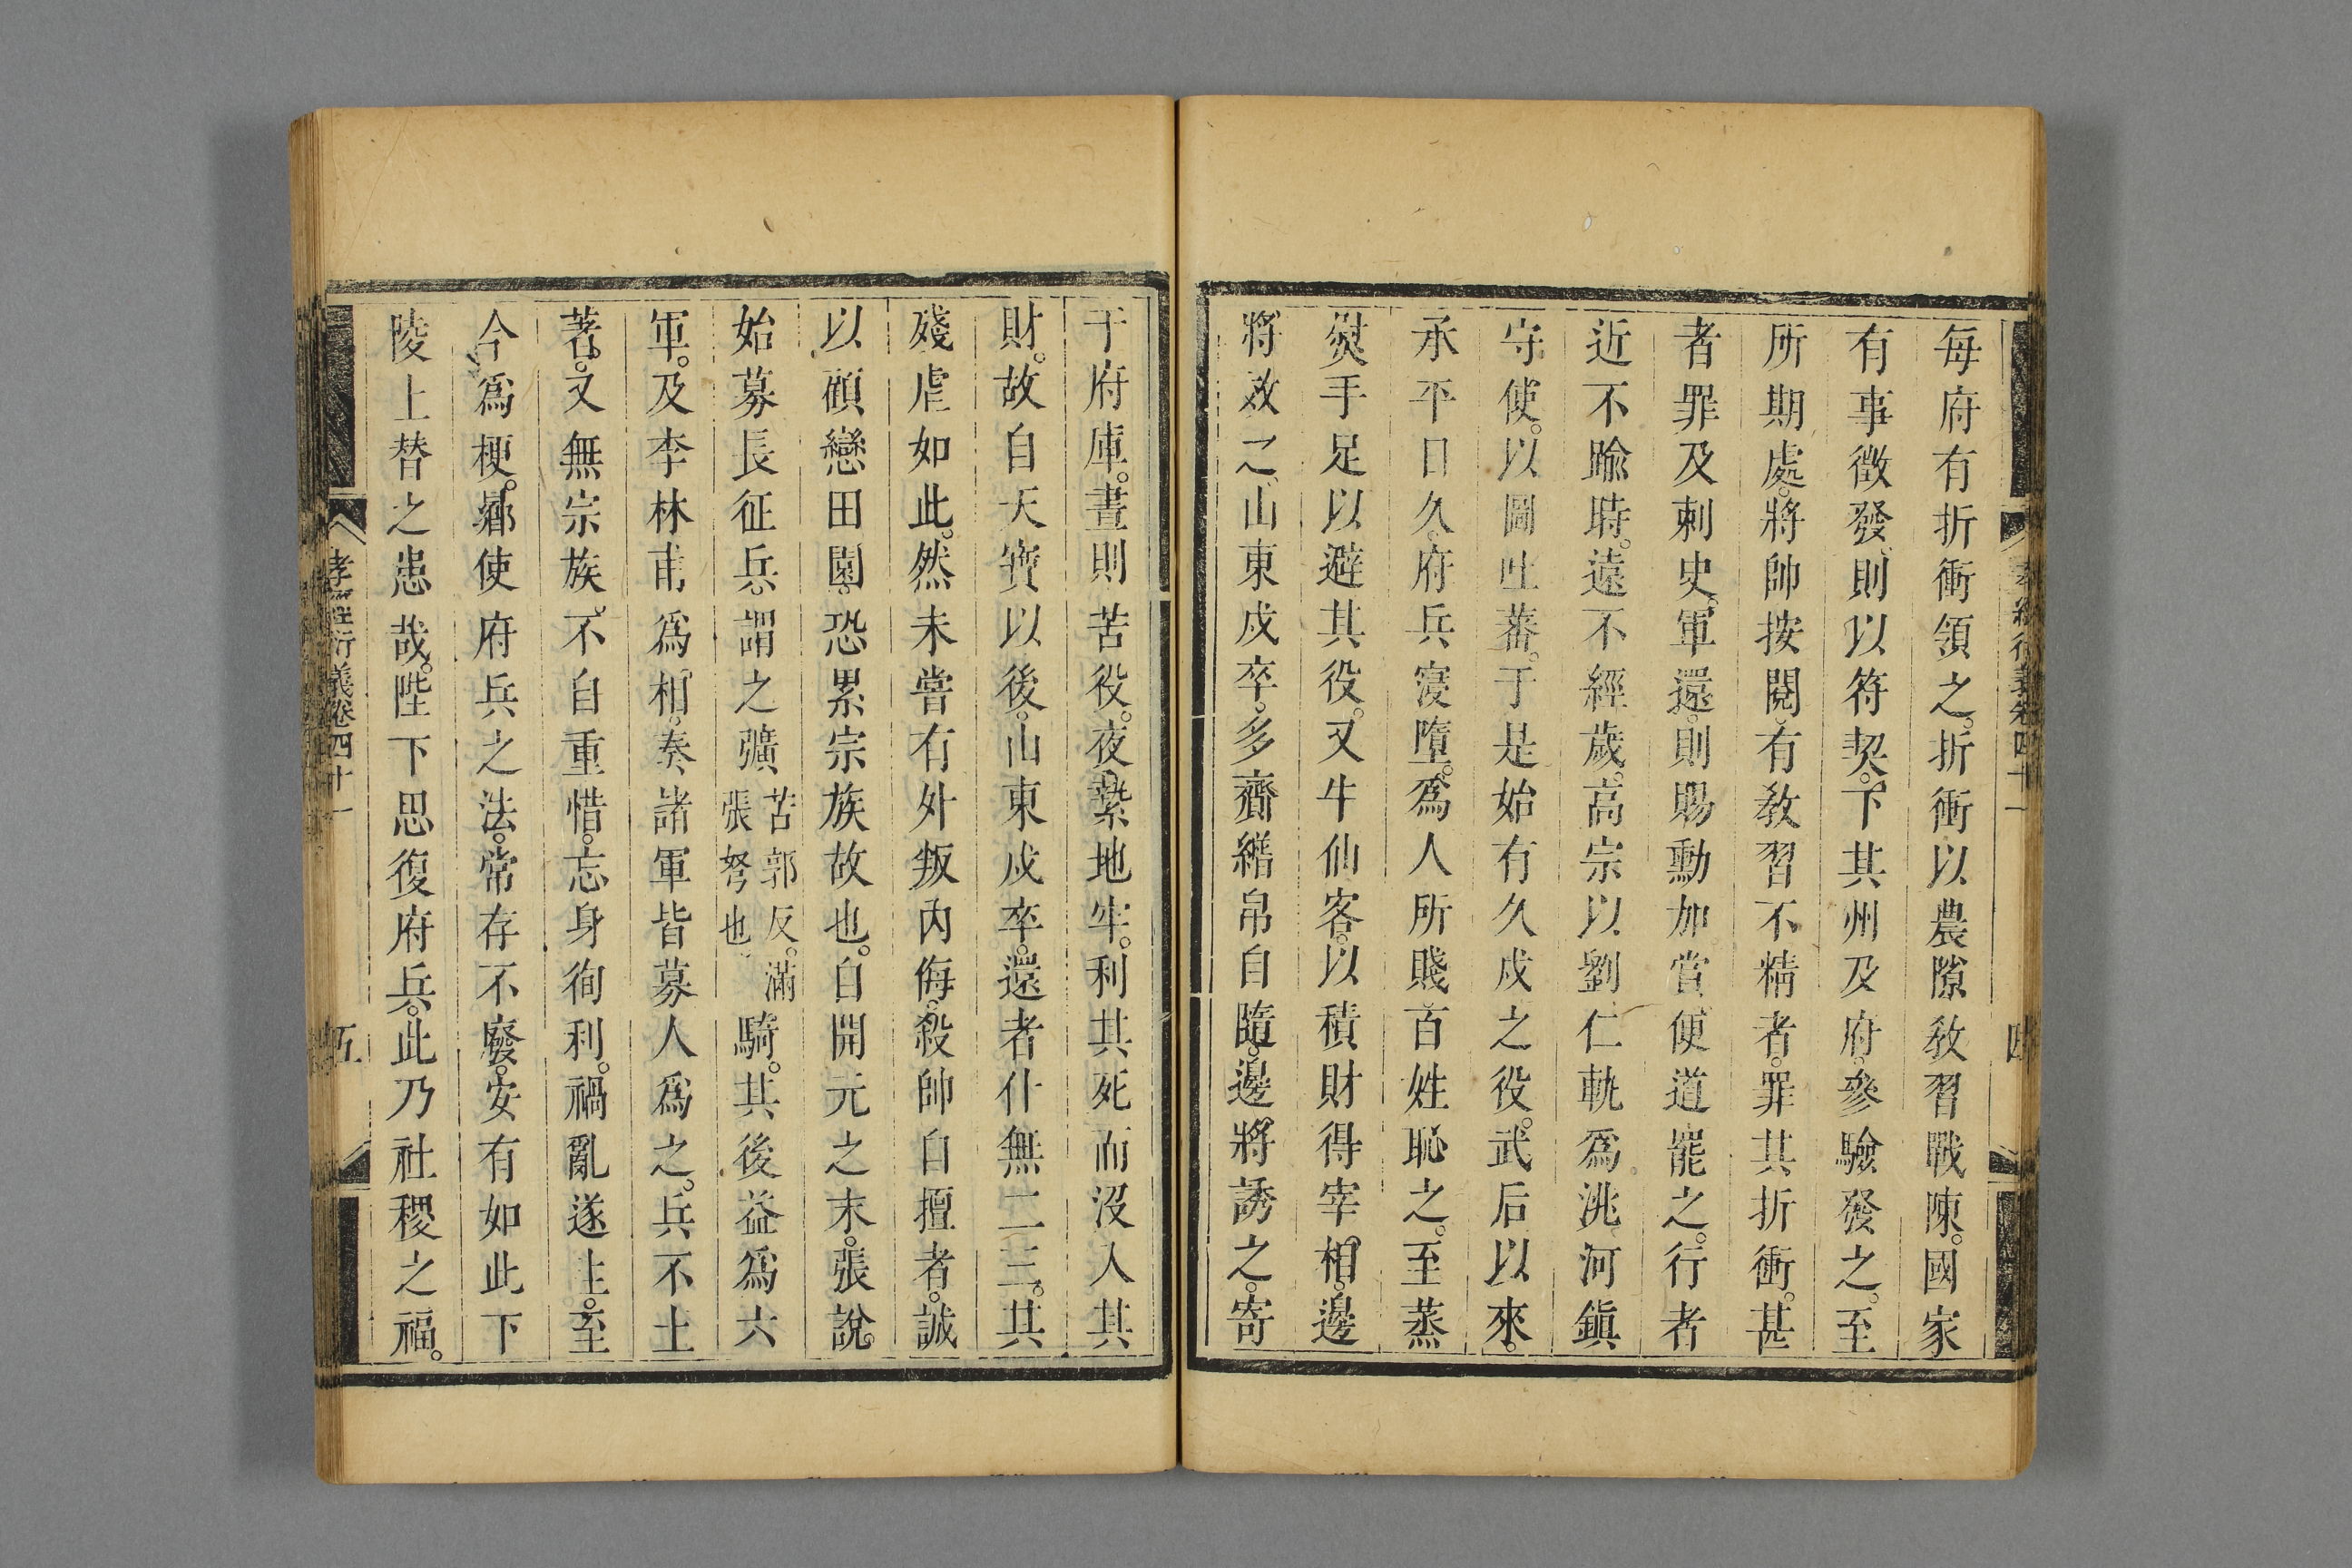 每府有折衝領之。折衝以農隙教習戰陳。國家
有事徵發、則以符契。下其州及府。參驗發之。至
所期處。將帥按閱、有教習不精者。罪其折衝。甚
者罪及刺史。軍還。則賜勳加賞、便道罷之。行者
近不踰時。遠不經歲。高宗以劉仁軌爲洮河鎭
守使。以圖吐蕃。于是始有久戍之役。武后以來。
承平日久。府兵寖墮。爲人所賤、百姓恥之。至蒸
熨手足以避其役。又牛仙客。以積財得宰相。邊
將效之、山東戍卒。多齎繒帛自隨。邊將誘之。寄
于府庫。晝則苦役。夜縶地牢。利其死而沒入其
財。故自天寶以後。山東戍卒。還者什無二三。其
殘虐如此。然未嘗有外叛內侮。殺帥自擅者。誠
以顧戀田園。恐累宗族故也。自開元之末。張說
始募長征兵。謂之彍苦郭反。滿張弩也、騎。其後益爲六
軍。及李林甫爲相。奏諸軍皆募人爲之。兵不土
著。又無宗族。不自重惜。忘身徇利。禍亂遂生。至
今爲梗。曏使府兵之法。常存不廢。安有如此下
陵上替之患哉。陛下思復府兵。此乃社稷之福。
孝經衍義卷四十一
四
孝經衍義卷四十一
五